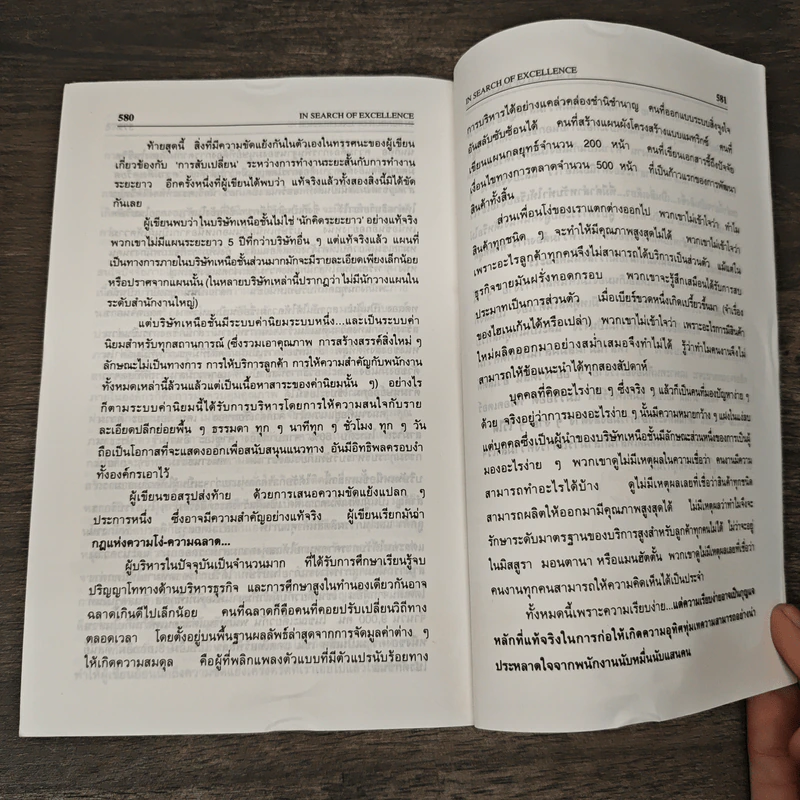 580
IN SEARCH OF EXCELLENCE
ท้ายสุดนี้ สิ่งที่มีความขัดแย้งกันในตัวเองในทรรศนะของผู้เขียน
เกี่ยวข้องกับ 'การสับเปลี่ยน' ระหว่างการทำงานระยะสั้นกับการทำงาน
ระยะยาว อีกครั้งหนึ่งที่ผู้เขียนได้พบว่า แท้จริงแล้วทั้งสองสิ่งนี้มิได้ขัด
กันเลย
ผู้เขียนพบว่าในบริษัทเหนือชั้นไม่ใช่ 'นักคิดระยะยาว' อย่างแท้จริง
พวกเขาไม่มีแผนระยะยาว 5 ปีที่กว่าบริษัทอื่น ๆ แต่แท้จริงแล้ว แผนที่
เป็นทางการภายในบริษัทเหนือชั้นส่วนมากมักจะมีรายละเอียดเพียงเล็กน้อย
หรือปราศจากแผนนั้น (ในหลายบริษัทเหล่านี้ปรากฏว่า ไม่มีนักวางแผนใน
ระดับสำนักงานใหญ่)
แต่บริษัทเหนือชั้นมีระบบค่านิยมระบบหนึ่ง...และเป็นระบบค่า
นิยมสำหรับทุกสถานการณ์ (ซึ่งรวมเอาคุณภาพ การสร้างสรรค์สิ่งใหม่ ๆ
ลักษณะไม่เป็นทางการ การให้บริการลูกค้า การให้ความสำคัญกับพนักงาน
ทั้งหมดเหล่านี้ล้วนแล้วแต่เป็นเนื้อหาสาระของค่านิยมนั้น ๆ) อย่างไร
ก็ตามระบบค่านิยมนี้ได้รับการบริหารโดยการให้ความสนใจกับราย
ละเอียดปลีกย่อยพื้น ๆ ธรรมดา ทุก ๆ นาทีทุก ๆ ชั่วโมง ทุก ๆ วัน
ถือเป็นโอกาสที่จะแสดงออกเพื่อสนับสนุนแนวทาง อันมีอิทธิพลครอบงำ
ทั้งองค์กรเอาไว้
ผู้เขียนขอสรุปส่งท้าย ด้วยการเสนอความขัดแย้งแปลก ๆ
ประการหนึ่ง ซึ่งอาจมีความสำคัญอย่างแท้จริง ผู้เขียนเรียกมันว่า
กฎแห่งความโง่-ความฉลาด...
ผู้บริหารในปัจจุบันเป็นจำนวนมาก ที่ได้รับการศึกษาเรียนรู้จบ
ปริญญาโททางด้านบริหารธุรกิจ และการศึกษาสูงในทำนองเดียวกันอาจ
ฉลาดเกินดีไปเล็กน้อย คนที่ฉลาดก็คือคนที่คอยปรับเปลี่ยนวิถีทาง
ตลอดเวลา โดยตั้งอยู่บนพื้นฐานผลลัพธ์ล่าสุดจากการจัดมูลค่าต่าง ๆ
ให้เกิดความสมดุล คือผู้ที่พลิกแพลงตัวแบบที่มีตัวแปรนับร้อยทาง
IN SEARCH OF EXCELLENCE
581
การบริหารได้อย่างแคล่วคล่องชำนิชำนาญ คนที่ออกแบบระบบสิ่งจูงใจ
อันสลับซับซ้อนได้ คนที่สร้างแผนผังโครงสร้างแบบแมทริกซ์ คนที่
เขียนแผนกลยุทธ์จำนวน 200 หน้า คนที่เขียนเอกสารชี้ถึงปัจจัย
เงื่อนไขทางการตลาดจำนวน 500 หน้า ที่เป็นก้าวแรกของการพัฒนา
สินค้าทั้งสิ้น
ส่วนเพื่อนโง่ของเราแตกต่างออกไป พวกเขาไม่เข้าใจว่า ทำไม
สินค้าทุกชนิด ๆ จะทำให้มีคุณภาพสูงสุดไม่ได้ พวกเขาไม่เข้าใจว่า
เพราะอะไรลูกค้าทุกคนจึงไม่สามารถได้บริการเป็นส่วนตัว แม้แต่ใน
ธุรกิจขายมันฝรั่งทอดกรอบ พวกเขาจะรู้สึกเสมือนได้รับการสบ
ประมาทเป็นการส่วนตัว เมื่อเบียร์ขวดหนึ่งเกิดเปรี้ยวขึ้นมา (จำเรื่อง
ของไฮเนเก้นได้หรือเปล่า) พวกเขาไม่เข้าใจว่า เพราะอะไรการมีสินค้า
ใหม่ผลิตออกมาอย่างสม่ำเสมอจึงทำไม่ได้ รู้ว่าทำไมคนงานจึงไม่
สามารถให้ข้อแนะนำได้ทุกสองสัปดาห์
บุคคลที่คิดอะไรง่าย ๆ ซึ่งจริง ๆ แล้วก็เป็นคนที่มองปัญหาง่าย ๆ
ด้วย จริงอยู่ว่าการมองอะไรง่าย ๆ นั้นมีความหมายกว้าง ๆ แฝงในแง่ลบ
แต่บุคคลซึ่งเป็นผู้นำของบริษัทเหนือชั้นมีลักษณะส่วนหนึ่งของการเป็นผู้
มองอะไรง่าย ๆ พวกเขาดูไม่มีเหตุผลในความเชื่อว่า คนงานมีความ
สามารถทำอะไรได้บ้าง ดูไม่มีเหตุผลเลยที่เชื่อว่าสินค้าทุกชนิด
สามารถผลิตให้ออกมามีคุณภาพสูงสุดได้ ไม่มีเหตุผลว่าทำไมจึงจะ
รักษาระดับมาตรฐานของบริการสูงสำหรับลูกค้าทุกคนไม่ได้ ไม่ว่าจะอยู่
ในมิสซูรา มอนตานา หรือแมนฮัตตั้น พวกเขาดูไม่มีเหตุผลเลยที่เชื่อว่า
คนงานทุกคนสามารถให้ความคิดเห็นได้เป็นประจำ
ทั้งหมดนี้เพราะความเรียบง่าย...แต่ความเรียบง่ายอาจเป็นกุญแจ
หลักที่แท้จริงในการก่อให้เกิดความอุทิศทุ่มเทความสามารถอย่างน่า
ประหลาดใจจากพนักงานนับหมื่นนับแสนคน